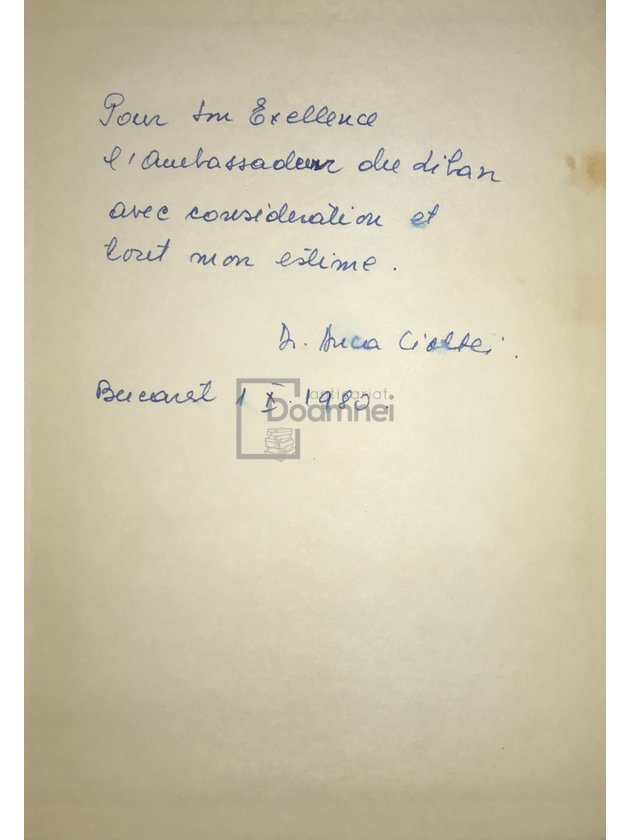 Pour son Exellence
l'Ambassadeur du Liban
avec consideration et
tout mon estime.
Dr. Anca
Bucarest 1 X. 1980.
anticariat
Doamnei